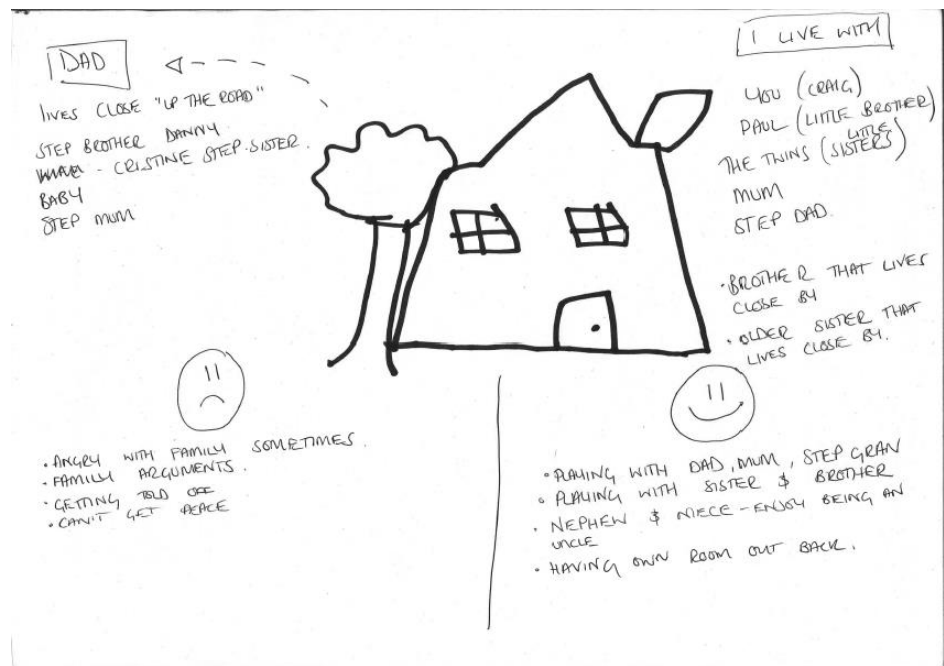 DAD
LIVES CLOSE "UP THE ROAD"
STEP BROTHER DANNY.
- CRISTINE STEP-SISTER.
BABY
STEP MUM
I LIVE WITH
YOU (CRAIG)
PAUL (LITTLE BROTHER)
THE TWINS (LITTLE SISTERS)
MUM
STEP DAD.
• BROTHER THAT LIVES
CLOSE BY
• OLDER SISTER THAT
LIVES CLOSE BY.
• ANGRY WITH FAMILY SOMETIMES.
• FAMILY ARGUMENTS.
• GETTING TOLD OFF
• CAN'T GET PEACE
• PLAYING WITH DAD, MUM, STEP GRAN
• PLAYING WITH SISTER & BROTHER
• NEPHEW & NIECE - ENJOY BEING AN
UNCLE
• HAVING OWN ROOM OUT BACK.